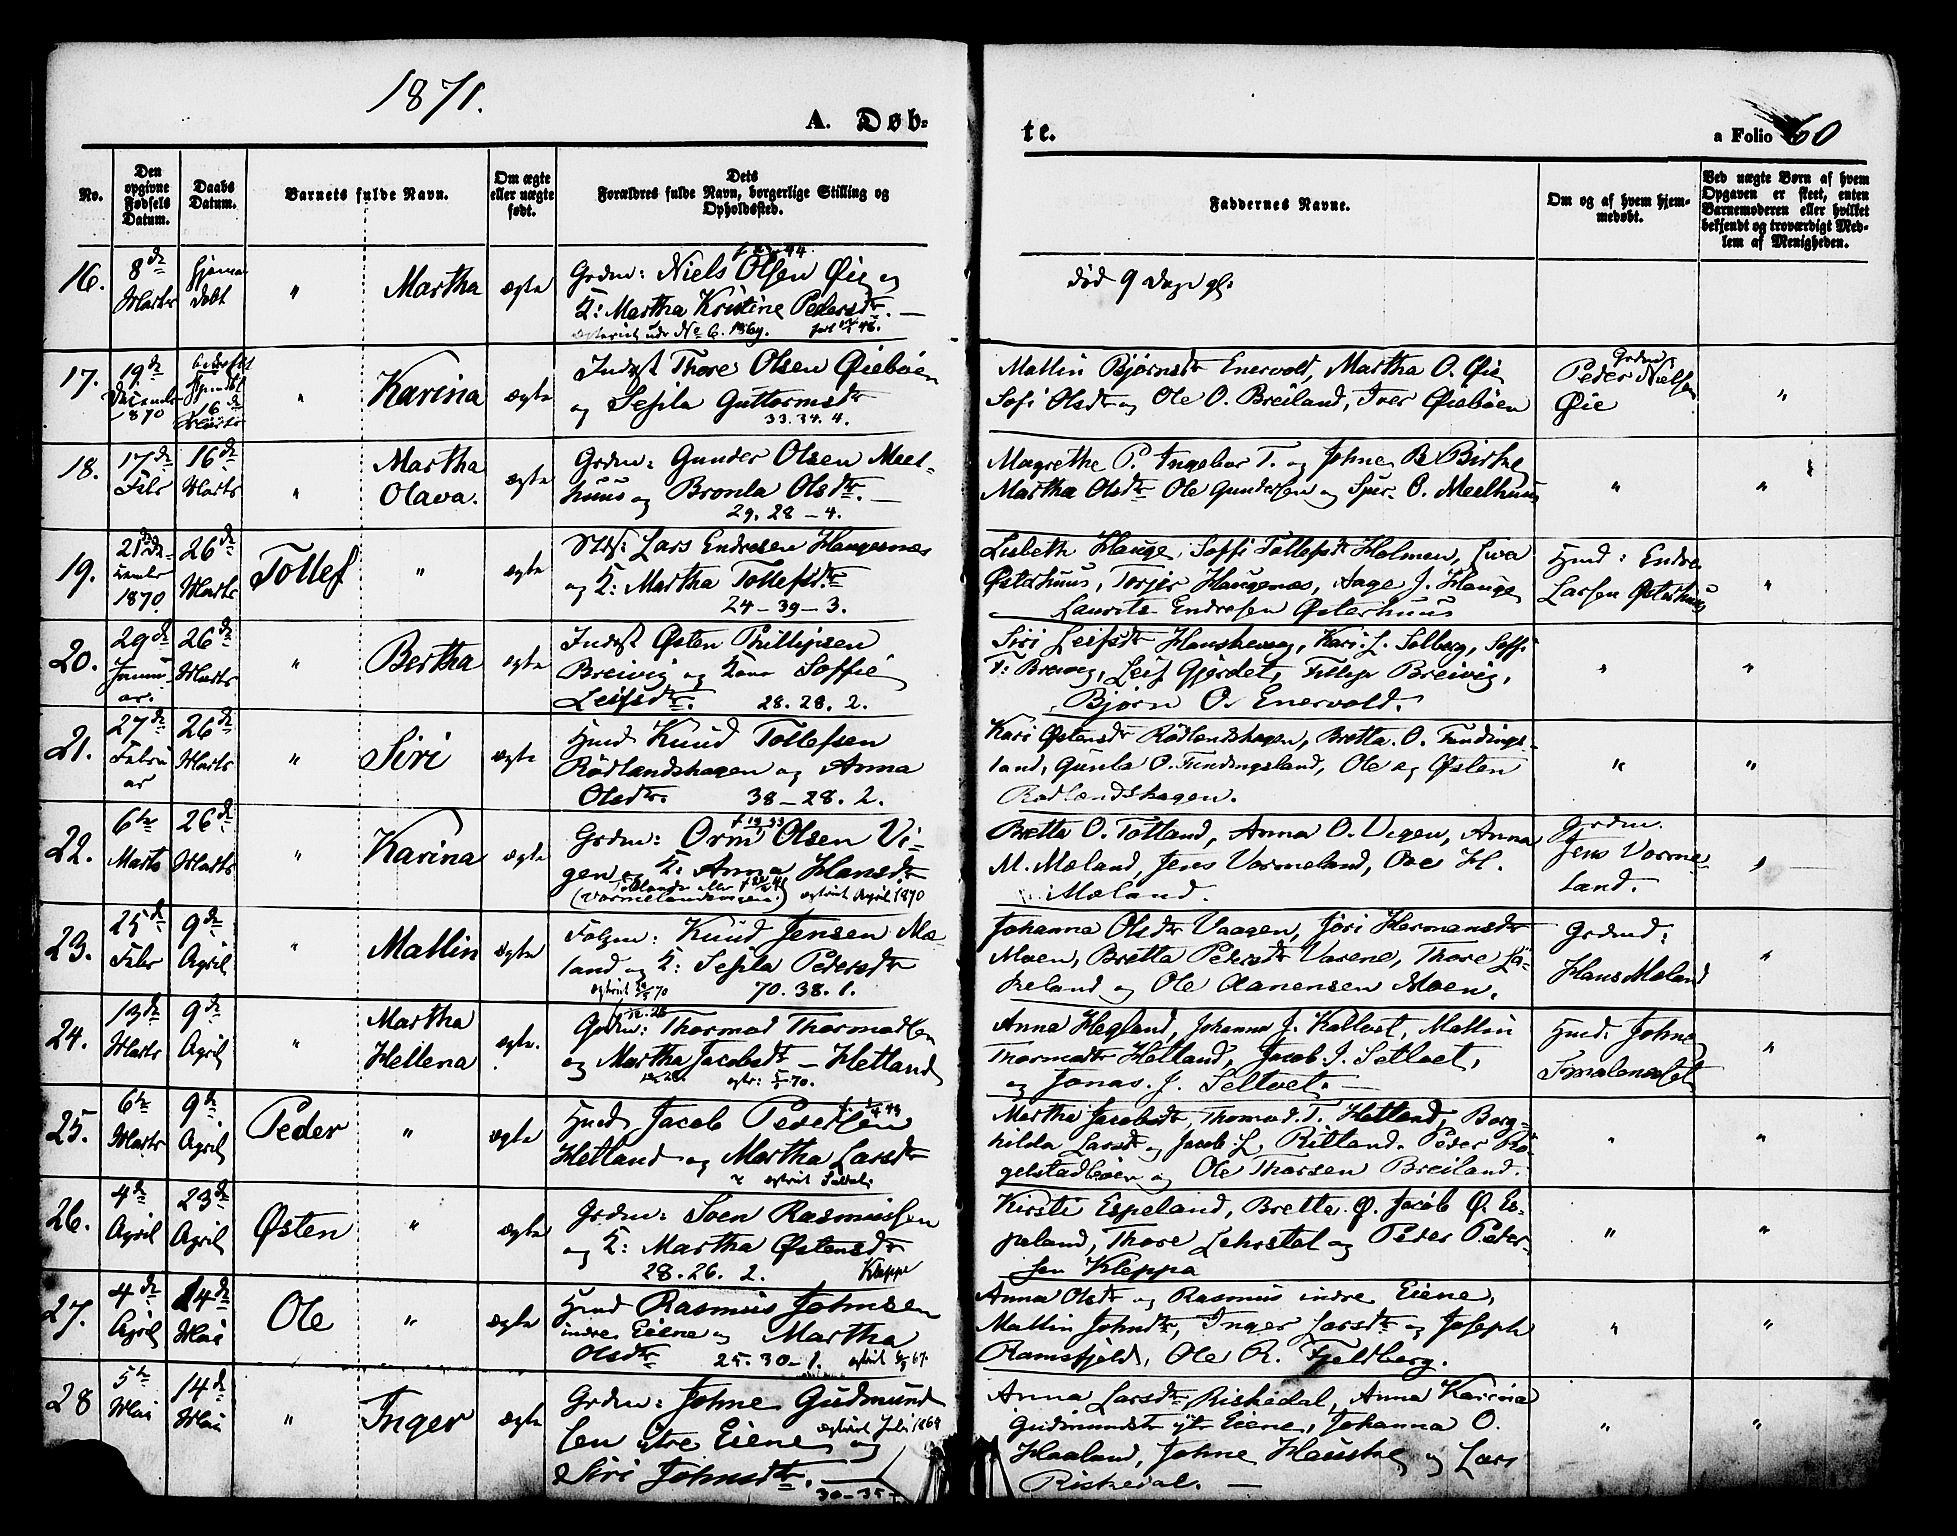 1871.
A. Døb-
te.
a Folio 60
No.
Den opgivne Fødsels Datum.
Daabs Datum.
Barnets fulde Navn.
Om ægte eller uægte født.
Dets Forældres fulde Navn, borgerlige Stilling og Opholdssted.
Faddernes Navne.
Om og af hvem hjemmedøbt.
Ved uægte Børn af hvem Opgaven er skeet, enten Barnemoderen eller hvilket bekjendt og troværdigt Medlem af Menigheden.
16. 8de Marts hjemmedøbt " Martha ægte
Grdm: Niels Olsen Øie og
K: Martha Kristine Pedersdtr. —
død 9 Dage gl:
17. 19de December 1870 16de Marts " Karina ægte
Indst Thore Olsen Øiebøen
og Sesila Guttormsdtr
33. 34. 4.
Mallin Bjørnsdtr Enervold, Martha O. Øie
Sofi Olsdtr og Ole O. Breiland, Iver Øiebøen
Grdm. Peder Nielsen Øie "
18. 17de Febr 16de Marts " Martha Olava. ægte
Grdm: Gunder Olsen Meel-
huus og Bronla Olsdtr. —
29. 28 – 4.
Margrethe P. Ingebor T. og Johne B. Birke
Martha Olsdtr Ole Gundersen og O. Meelhuus
" "
19. 21de December 1870. 26de Marts Tollef " ægte
Lars Endresen Haugesnæs
og K: Martha Tollefsdtr
24 – 39 – 3.
Lisbeth Hauge, Soffi Tollefsdtr Holmen, Liva
Østerhuus, Torjer Haugenæs, Aage J. Hauge
Laurits Endresen Østerhuus
Hmd: Endre Larsen Østerhuus "
20. 29de Januar. 26de Marts " Bertha ægte
Indst Østen Phillipsen
Breivig og Kone Soffie
Leifsdtr. 28. 28. 2.
Siri Leifsdtr Kari L. Solberg, Soffi
T: Breivig, Leif Gjerdet, Breivig,
Bjørn O. Enervold.
" "
21. 27de Februar 26de Marts " Siri ægte
Hmd Knud Tollefsen
Rødlandshagen og Anna
Olsdtr. 38 – 28. 2.
Kari Østensdtr Rødlandshagen, Bretta O. Fundings-
land, Gunla O. Fundingsland, Ole og Østen
Rødlandshagen.
" "
22. 6te Marts 26de Marts " Karina ægte
Grdm: Orm Olsen Vi-
gen og K: Anna Hansdtr
April 1870
Bretta O. Totland, Anna O. Vigen, Anna
M. Mæland, Jens Vormeland, Ove H.
Mæland.
Grdm. Jens Vormeland. "
23. 25de Febr 9de April " Mallin ægte
Folgm: Knud Jensen Mæ-
land og K: Sesila Pedersdtr
70. 38. 1.
Johanna Olsdtr Vaagen, Jøri Hermansdtr
Moen, Bretta Pedersdtr Varene, Thore
og Ole Aanensen Moen.
Grdmd: Hans Mæland "
24. 13de Marts 9de April " Martha Hellena ægte.
Grdm: Thormod Thormodsen
og Martha Jacobsdtr – Hetland
Anna Hegland, Johanna J. Mallin
Thormodsdtr Hetland, Jacob J. Seltvet,
og Jonas. J. Seltvet. —
Hmd: Johne "
25. 6te Marts 9de April Peder " ægte
Hmd Jacob Pedersen
Hetland og Martha Larsdtr
Martha Jacobsdtr, Thormod T. Hetland, Borg-
hilda Larsdtr og Jacob L. Ritland. Peder Rø-
gelstadbøen og Ole Thorsen Breiland.
" "
26. 4de April 23de April Østen " ægte
Grdm: Sven Rasmussen
og K: Martha Østensdtr
28. 26. 2. Kleppe
Kirsti Espeland, Bretta Ø. Jacob Ø. Es-
peland, Thore Lehrstøl og Peder Peder-
sen Kleppa
" "
27. 4de April 14de Mai Ole " ægte
Hmd Rasmus Johnsen
indre Eiene og Martha
Olsdtr 25. 30 – 1.
Anna Olsdtr og Rasmus indre Eiene,
Mallin Johnsdtr, Inger Larsdtr og Joseph
Ramsfjeld, Ole R. Fjeldberg.
" "
28 5te Mai 14de Mai " Inger ægte
Grdm: Johne Gudmund
sen ytre Eiene og
Siri Johnsdtr. —
30 – 35
Anna Larsdtr Riskedal, Anna Karina
Gudmundsdtr ytr Eiene, Johanna O.
Haaland, Johne Hauske og Lars
Riskedal. —
" "